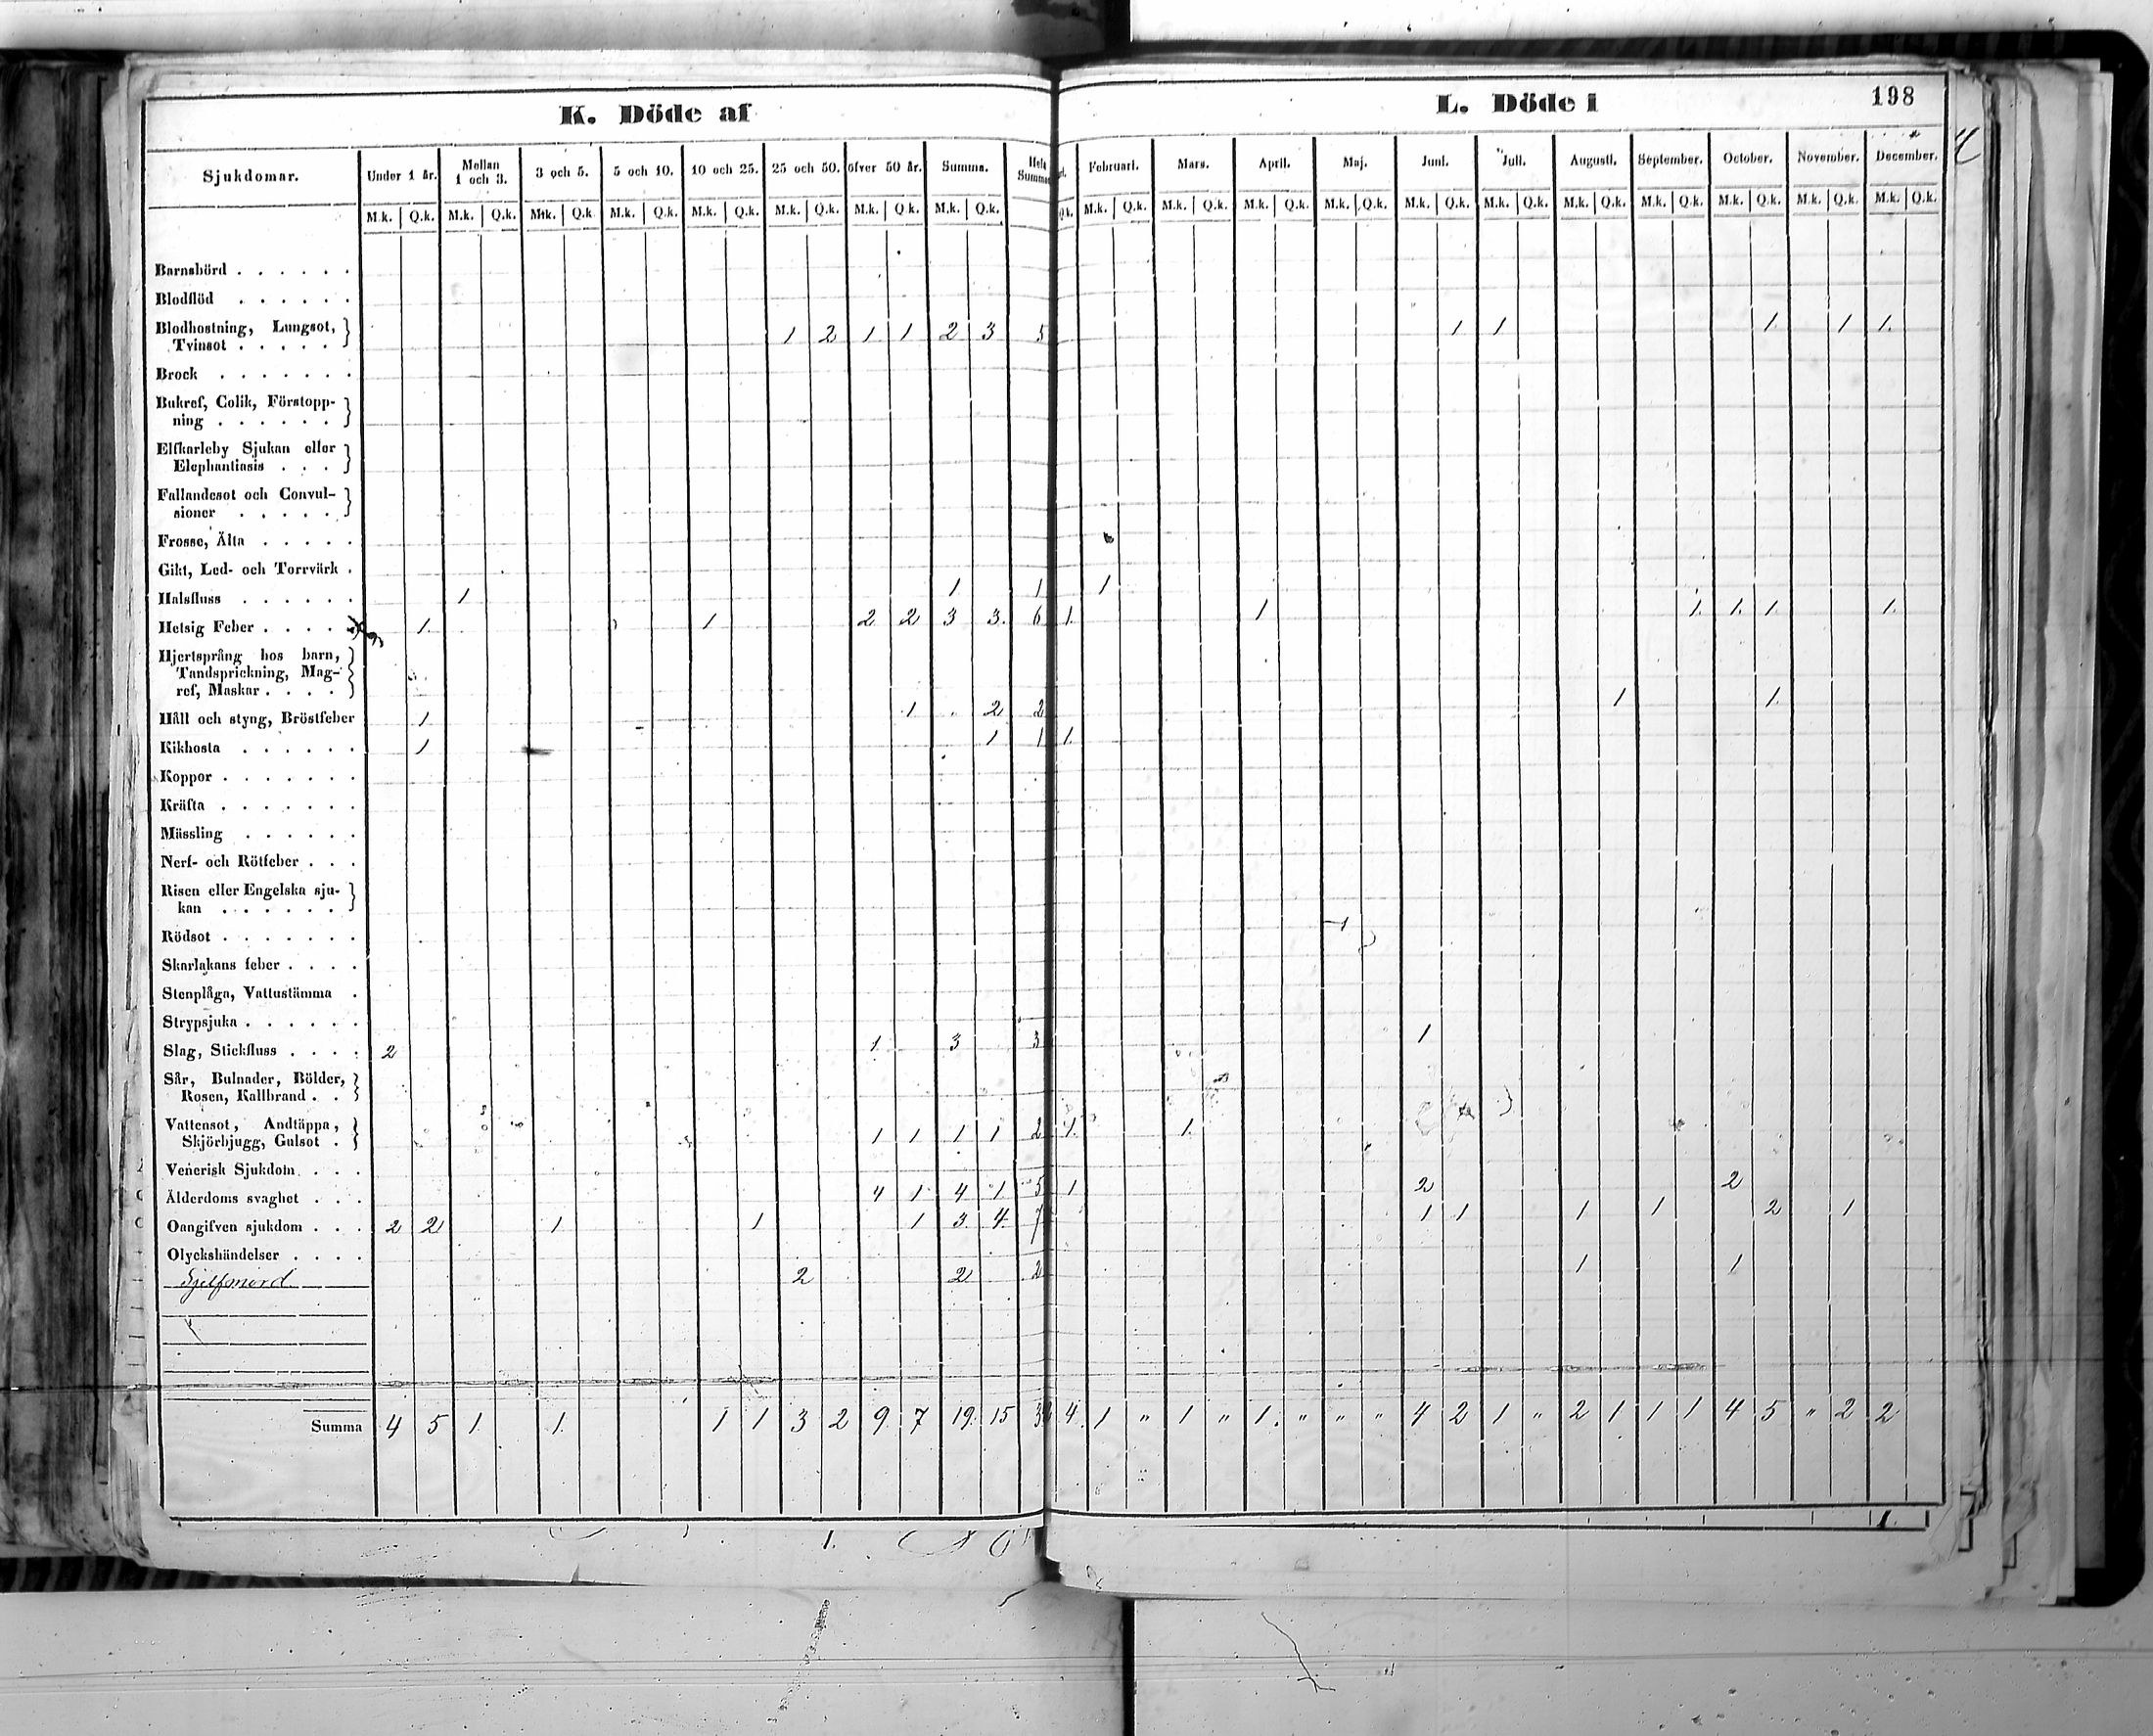 K. Döde af
L. Döde i
198
Sjukdomar.
Under 1 år.
Mellan 1 och 3.
3 och 5.
5 och 10.
10 och 25.
25 och 50.
öfver 50 år.
Summa.
Hela Summan
Februari.
Mars.
April.
Maj.
Juni.
Juli.
Augusti.
September.
October.
November.
December.
M.k. Q.k. M.k. Q.k. M.k. Q.k. M.k. Q.k. M.k. Q.k. M.k. Q.k. M.k. Q.k. M.k. Q.k. Q.k. M.k. Q.k. M.k. Q.k. M.k. Q.k. M.k. Q.k. M.k. Q.k. M.k. Q.k. M.k. Q.k. M.k. Q.k. M.k. Q.k. M.k. Q.k. M.k. Q.k.
Barnsbörd . . . . . .
Blodflöd . . . . . .
Blodhostning, Lungsot,
Tvinsot . . . . . 1 2 1 1 2 3 5 1 1 1 1 1
Brock . . . . . . .
Bukref, Colik, Förstopp-
ning . . . . . .
Elfkarleby Sjukan eller
Elephantiasis . . .
Fallandesot och Convul-
sioner . . . . .
Frosse, Älta . . . . .
Gikt, Led- och Torrvärk .
Halsfluss . . . . . . 1 1 1 1
Hetsig Feber . . . . 1 1 2 2 3 3 6 1 1 1 1 1 1
Hjertsprång hos barn,
Tandsprickning, Mag-
ref, Maskar . . . .
Håll och styng, Bröstfeber 1 1 2 2 1 1
Kikhosta . . . . . . 1 1 1 1
Koppor . . . . . . .
Kräfta . . . . . . .
Mässling . . . . . .
Nerf- och Rötfeber . . .
Risen eller Engelska sju-
kan . . . . . .
Rödsot . . . . . . .
Skarlakans feber . . . .
Stenplåga, Vattustämma .
Strypsjuka . . . . . .
Slag, Stickfluss . . . . 2 1 3 3 1
Sår, Bulnader, Bölder,
Rosen, Kallbrand . .
Vattensot, Andtäppa,
Skjörbjugg, Gulsot . 1 1 1 1 2 1 1
Venerisk Sjukdom . . .
Ålderdoms svaghet . . . 4 1 4 1 5 1 2 2
Oangifven sjukdom . . . 2 2 1 1 1 3 4 7 1 1 1 1 2 1
Olyckshändelser . . . .
Sjelfmord 2 2 2 1 1
Summa 4 5 1 1 1 1 3 2 9 7 19 15 34 4 1 " 1 " 1 " " " 4 2 1 " 2 1 1 1 4 5 " 2 2